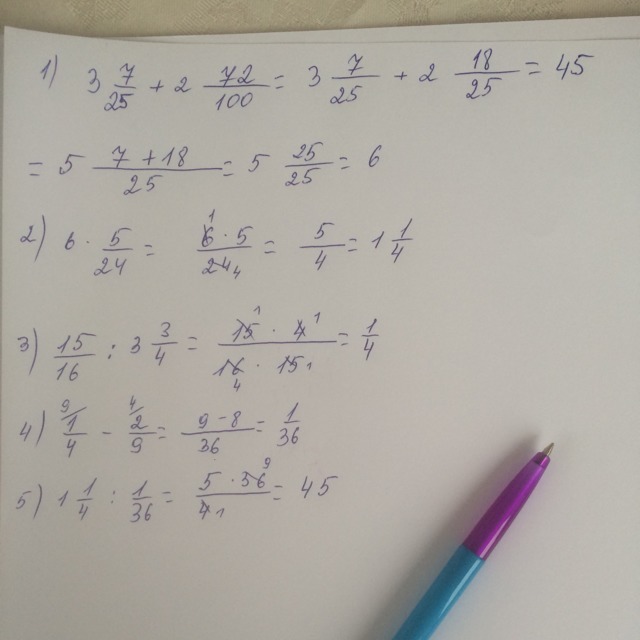 1) 3 7/25 + 2 72/100 = 3 7/25 + 2 18/25 = 45
= 5 (7 + 18)/25 = 5 25/25 = 6
2) 6 · 5/24 = (6 · 5)/24 1 4 = 5/4 = 1 1/4
3) 15/16 : 3 3/4 = (15 · 4)/(16 · 15) 1 1 4 1 = 1/4
4) 9/ 1/4 - 4/ 2/9 = (9 - 8)/36 = 1/36
5) 1 1/4 : 1/36 = (5 · 56)/4 9 1 = 45